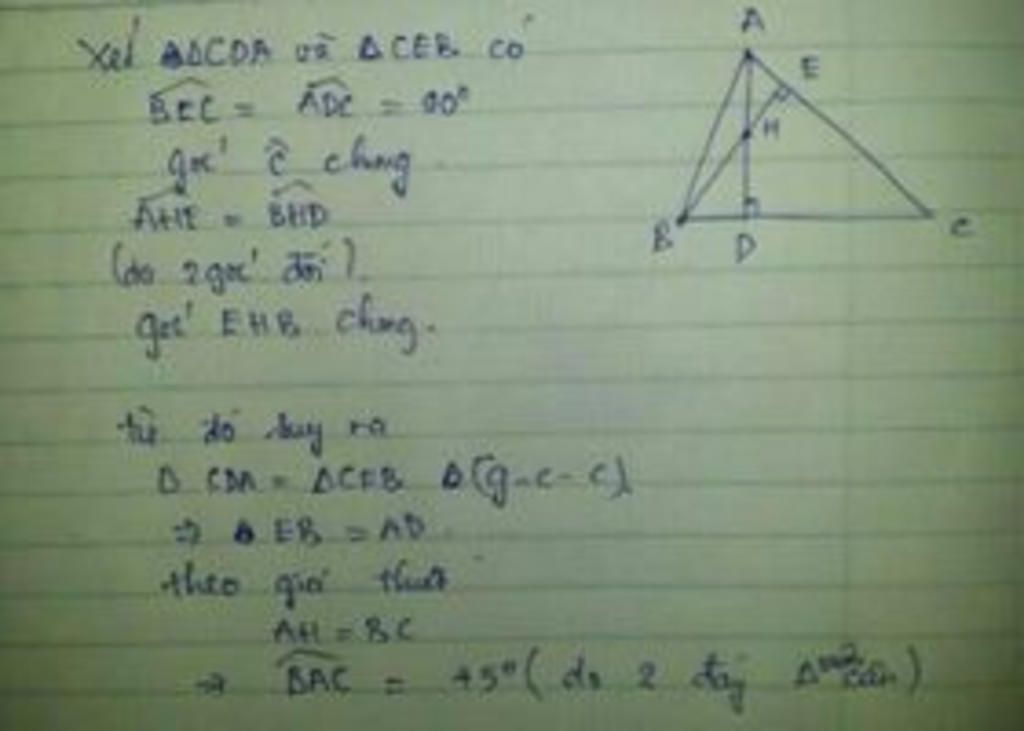 Xét ΔCDA và ΔCEB có
BEC = ADC = 90°
góc C chung
AHE = BHD
(do 2 góc đối).
góc EHB chung.
từ đó suy ra
Δ CDA = ΔCEB (g-c-c)
⇒ EB = AD
theo giả thiết
AH = BC
⇒ BAC = 45° (do 2 đáy Δ cân)
A
E
H
B
D
C